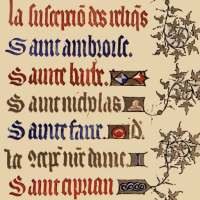 la suscepcō des reliqs
Saint ambroise.
Sainte barbe.
Saint nicholas
Sainte fare. d.
la 9cep. nře dame.
Saint ciprian